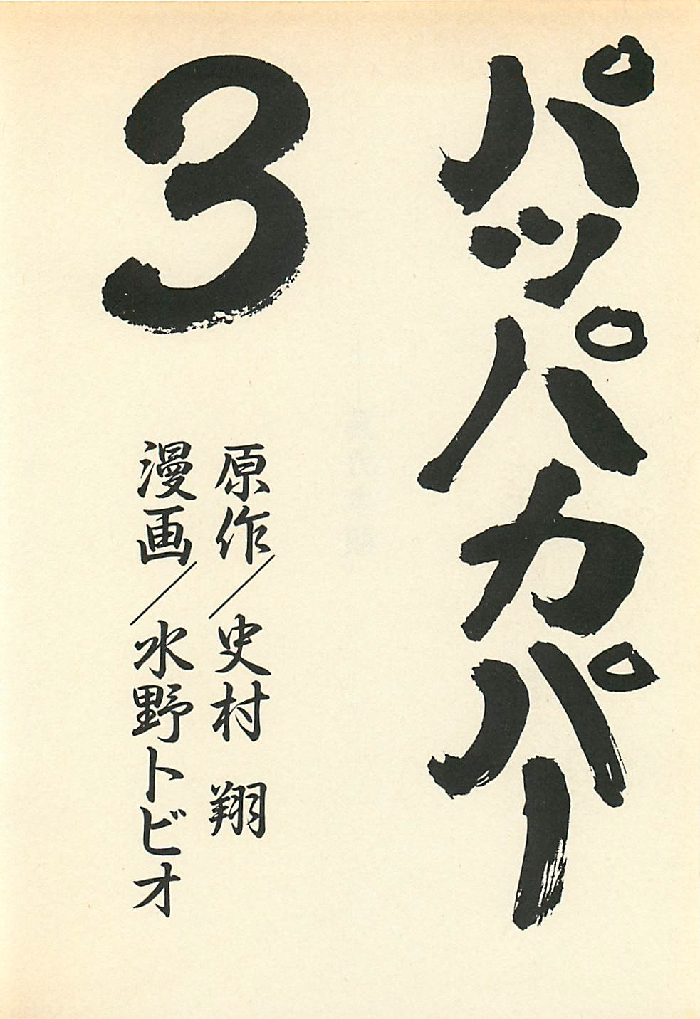 パッパカパー
3
原作／史村 翔
漫画／水野トビオ